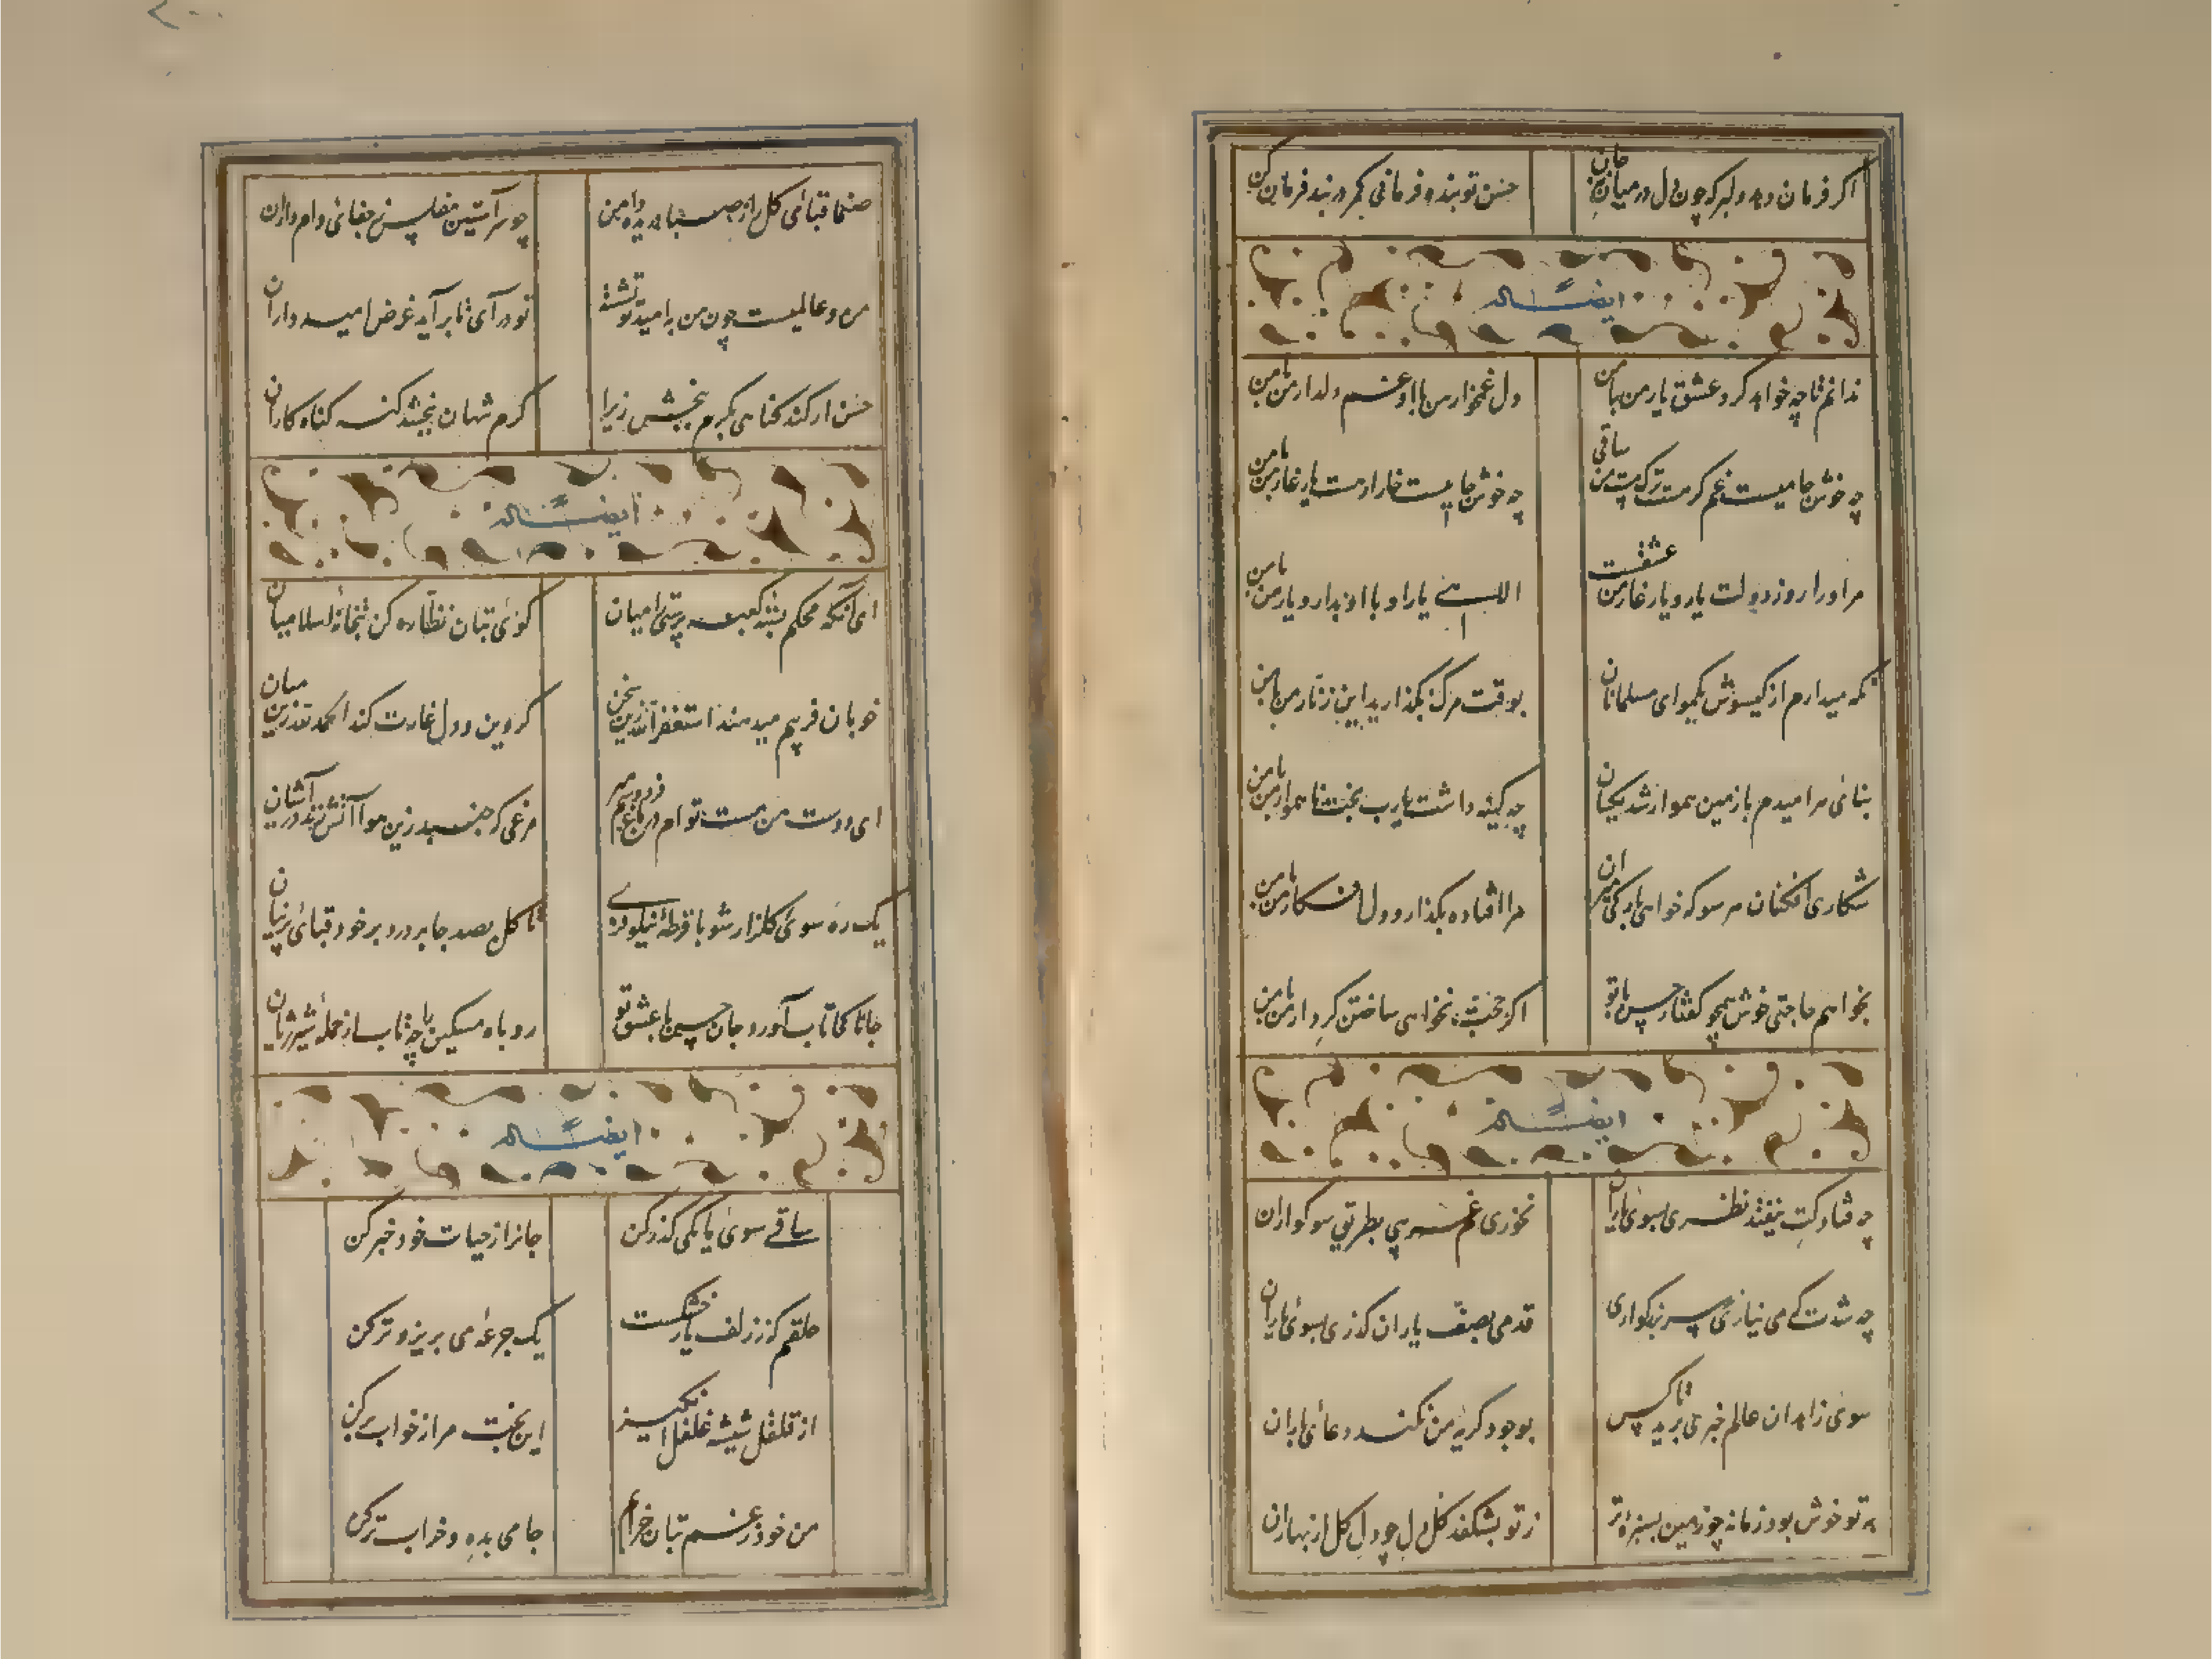 اگر فرمان دهد دلبر که چون دل در میان جان کن
حسن تو بنده فرمانی کمر در بند فرمان کن
ایضاً له
ندانم تا چه خواهد کرد عشق یار من با من
دل غمخوار من با او غم دلدار من با من
چه خوش جامیست غم کز مست ساقی
چه خوش جاییست غار ار هست یار غار من با من
مرا او را روز دولت یار و یار غار من عشقت
الهی یار او با او بدار و یار من با من
نگه میدارم از گیسوش یک مو ای مسلمانان
بوقت مرگ بگذارید این زنار من با من
بنائی مر امیدم با زمین هموار شد یکسان
چه کینه داشت یارب بخت ناهموار من با من
شکاری افکنان هر سو که خواهی بارگی میران
مرا افتاده بگذار و دل افکار من با من
بخواهم حاجتی خوش همچو گفتار حسن با تو
اگر سختت نخواهی ساختن کردار من با من
ایضاً له
چه فتادکت نیفتد نظری بسوی یاران
نخوری غم غریبی بطریق سوکواران
چه شدت که می نیازی بسر بزرکواری
قدمی بصف یاران گذری بسوی یاران
سوی زاهدان عالم خبری برید تا کس
بوجود گریه من نکند دعای باران
به تو خوش بود زمانه چو زمین بسبزه تر
ز تو بشکفد گل دل چو دل گل از بهاران
صنما قبای گل را ز صبا دریده دامن
چو سر آستین مفلس ز جفای وام داران
من و عالمیست چون من به امید تو نشسته
تو در آی تا برآید غرض امیدواران
حسن ار کند گناهی بکرم ببخش زیرا
کرم شهان ببخشد گنه گناه کاران
ایضاً له
ای آنکه محکم بسته کعبه پرستی را میان
گوی بتان نظاره کن بتخانه اسلامیان
خوبان فریبم میدهند استغفر الله زین سخن
گر دین و دل غارت کند الحمد لله زین میان
ای دوست من مست توام در باغ غم
مرغی که جنبد زین هوا آتش زند در آشیان
یک ره سوی گلزار شو با قرطه نیلوفری
تا گل بصد جا بر درد بر خود قبای پرنیان
جانا کجا تاب آورد جان حسن با عشق تو
روباه مسکین را چه تاب از حمله شیر ژیان
ایضاً له
ساقی سوی ما یکی گذر کن
جانرا ز حیات خود خبر کن
حلقم که ز زلف یار خشکست
یک جرعه می بریز و تر کن
از قلقل شیشه غلغل انگیز
این بخت مرا ز خواب بر کن
من خود ز غم بتان خرابم
جامی بده و خراب تر کن